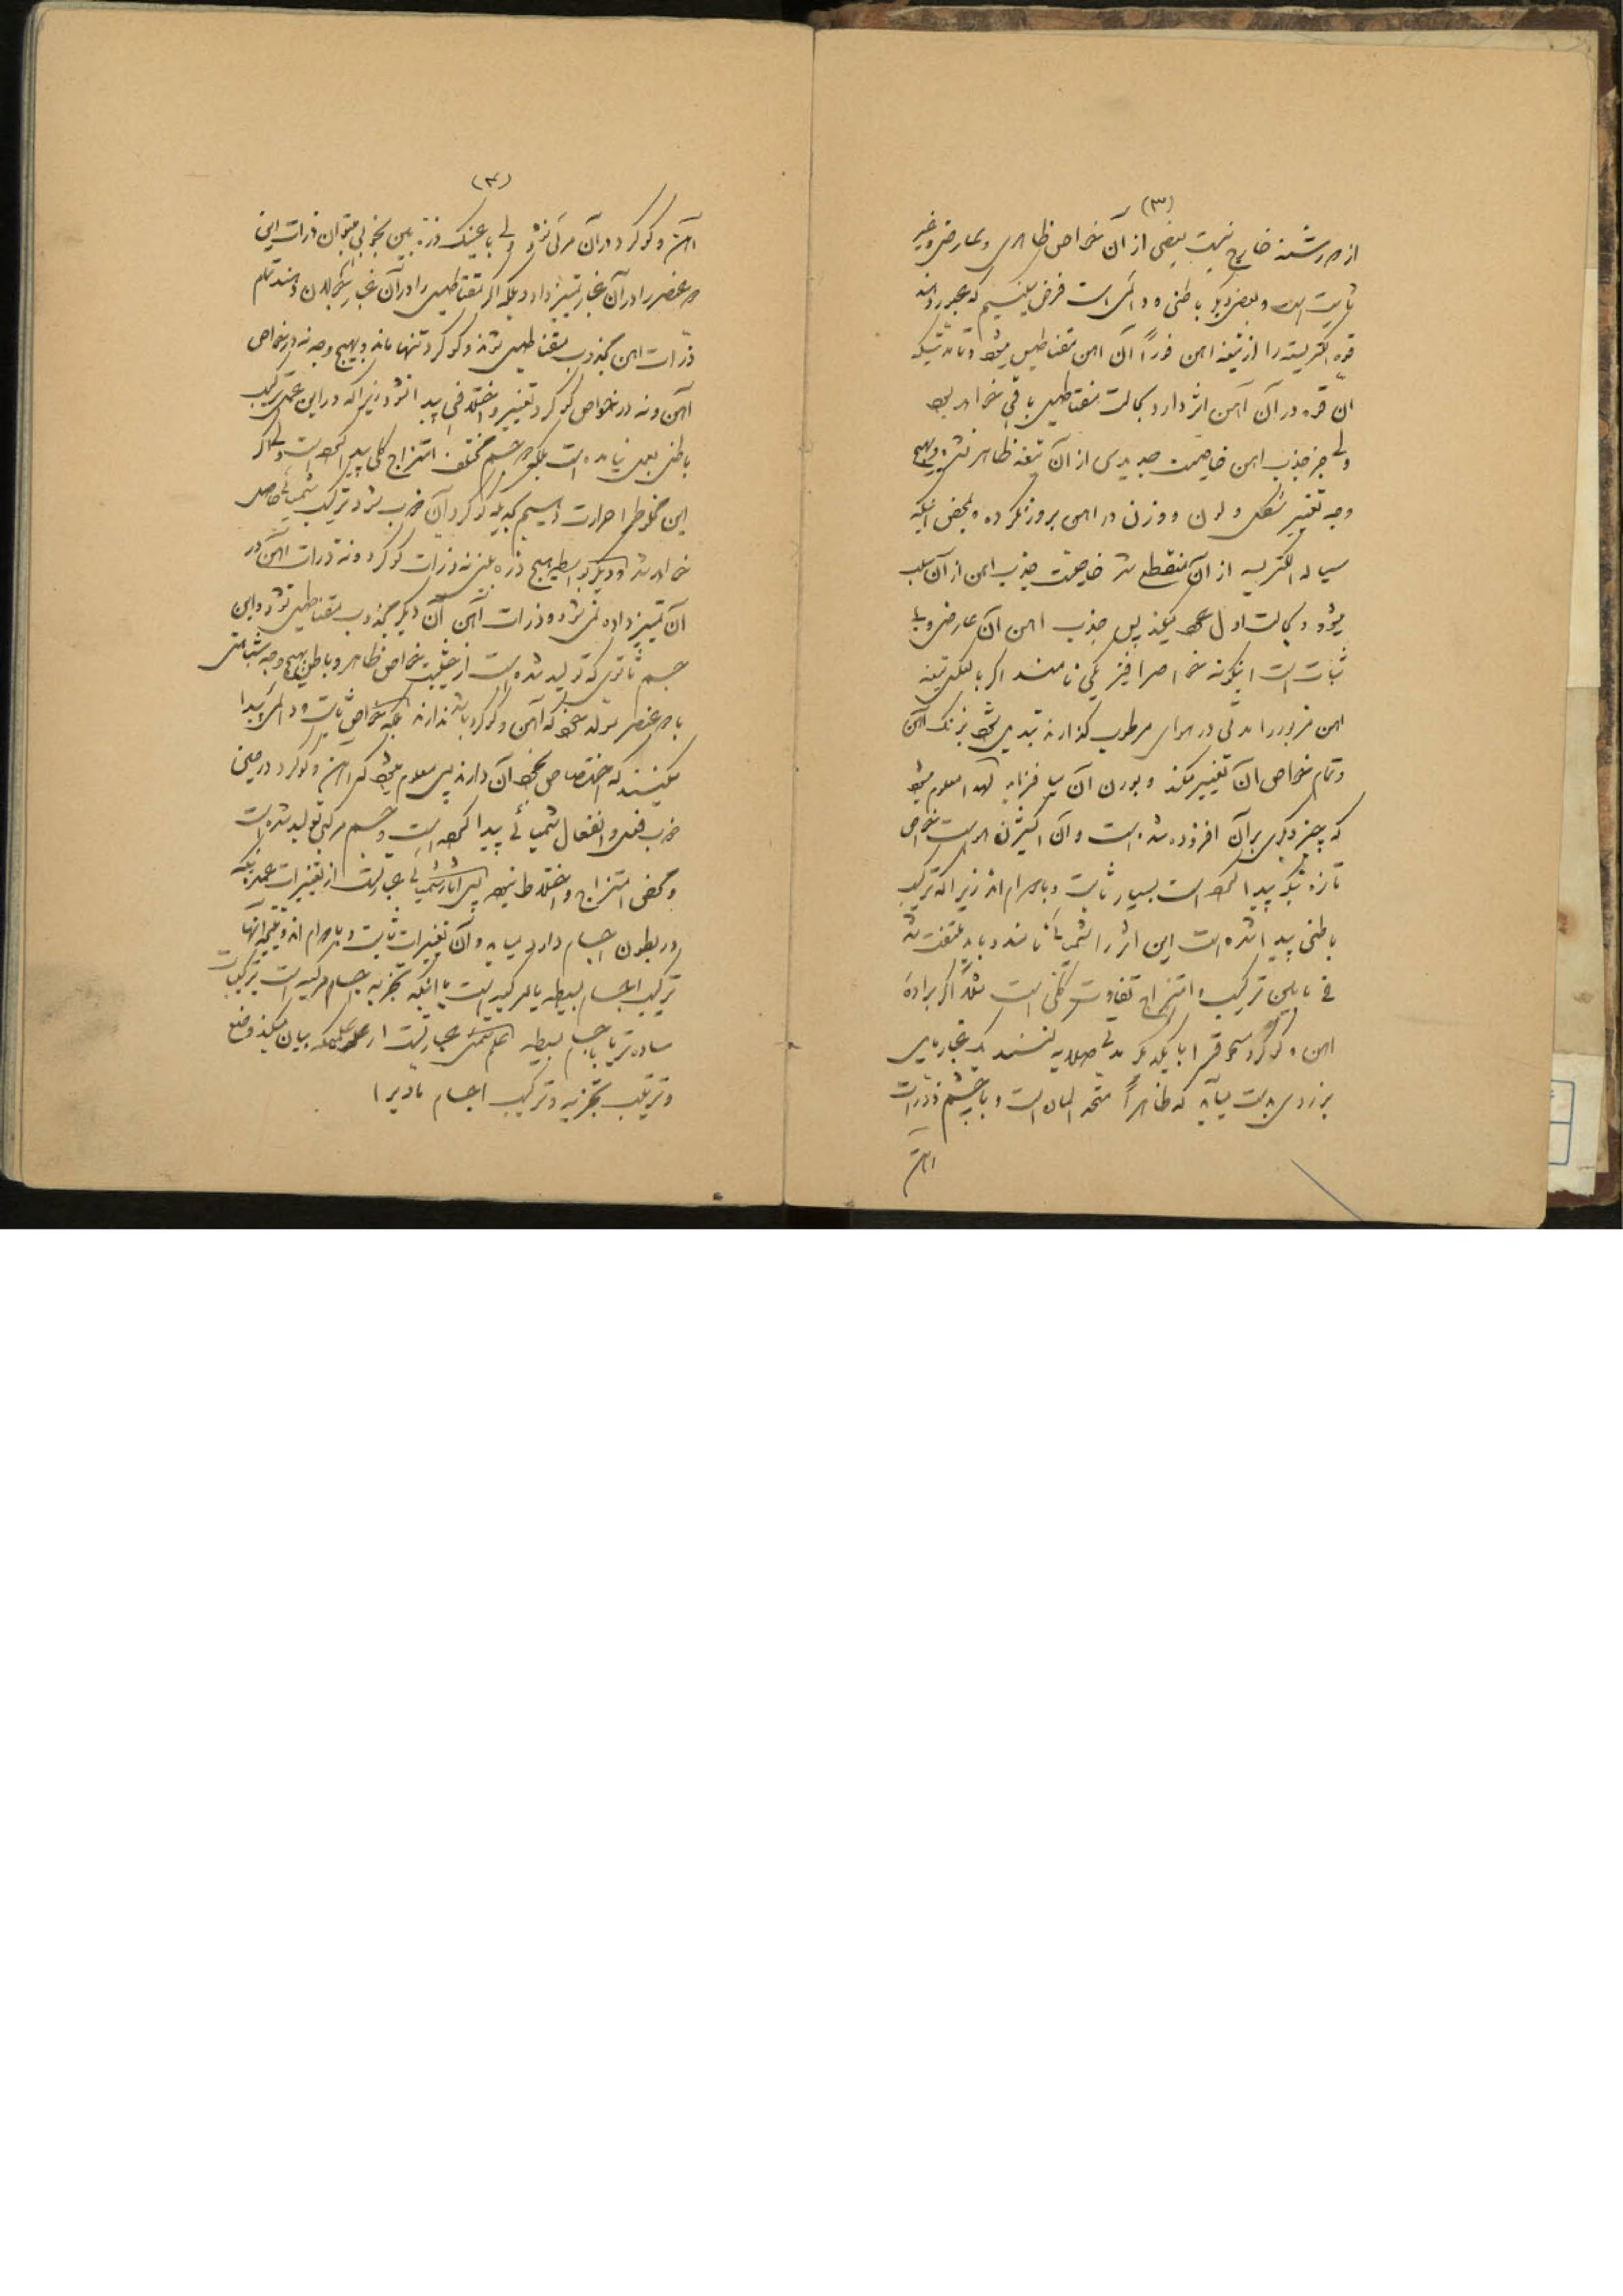 (۳)
از دو رشته خارج نیست بعضی از آن خواص ظاهری و عارضی و غیر
ثابت است و بعض دیگر باطنی و دائمی است فرض میکنیم که عبور دهند
قوه الکتریسته را از تیغه اهن فوراً آن اهن مقناطیس میشود و تا مدتیکه
ان قوه در آن آهن اثر دارد بحالت مقناطیسی باقی خواهد بود
ولی جز جذب اهن خاصیت جدیدی از آن تیغه ظاهر نشده و بهیچ
وجه تغییر شکل و لون و وزن در اهن بروز نکرده و بمحض اینکه
سیاله الکتریسیه از آن منقطع شد خاصیت جذب اهن از آن سلب
میشود و بحالت اول عود میکند پس جذب اهن آن عارضی و بی
ثبات است اینگونه خواص را فیزیکی نامند اگر بالعکس تیغه
اهن مزبور را مدتی در هوای مرطوب گذارند تبدیل میشود بزنگ آهن
و تمام خواص ان تغییر میکند و بوزن آن میافزاید لهذا معلوم میشود
که چیز دیگری بر آن افزوده شده است و آن اکسیژن هواست خواص
تازه که پیدا کرده است بسیار ثابت و بادوام اند زیرا که ترکیب
باطنی پیدا شده است این اثر را شمیائی نامند و باید ملتفت شد
فی مابین ترکیب و امتزاج تفاوت کلی است مثلا اگر براده
اهن و گوگرد مسحوق را با یکدیگر مدتی صلایه کنند یک غبار مایل
بزردی بدست میآید که ظاهراً متحد المان است و با چشم ذرات
اهن
(۴)
آهن و گوگرد در آن مرئی نشود ولی با عینک ذره بین بخوبی میتوان ذرات این
دو عنصر را در آن غبار تمیز داد و بلکه اگر مقناطیس را در آن غبار جولان دهند تمام
ذرات اهن مجذوب مقناطیس شوند و گوگرد تنها ماند و بهیچ وجه نه در خواص
آهن و نه در خواص گوگرد تغییر و اختلافی پیدا نشود زیرا که در این عمل ترکیب
باطنی بعمل نیامده است بلکه دو جسم مختلف امتزاج کلی پیدا کرده است ولی اگر
این مخلوط را حرارت دهیم که گوگرد آن ذوب شود ترکیب شمیائی حاصل
خواهد شد و دیگر بواسطه هیچ ذره بینی نه ذرات گوگرد و نه ذرات آهن در
آن تمییز داده نمی شود و ذرات آهن آن دیگر مجذوب مقناطیس نشود و این
جسم ثانوی که تولید شده است از حیثیت خواص ظاهر و باطن بهیچ وجه شباهتی
با دو عنصر مولد خود که آهن و گوگرد باشد ندارند بلکه خواص ثابت و دائمی پیدا
میکنند که اختصاص بخود آن دارند پس معلوم میشود که آهن و گوگرد در حین
ذوب فعل و انفعال شمیائی پیدا کرده است و جسم مرکبی تولید شده است
و محض امتزاج و اختلاط نبوده پس آثار شمیائی عبارتست از تغییرات عمده که
در بطون اجسام دارد میاید و آن تغییرات ثابت و بادوام اند و نتیجه آنها
ترکیب اجسام بسیطه یا مرکبه است یا اینکه تجزیه اجسام مرکبه است بترکیبات
ساده تر یا باجسام بسیطه علم شیمی عبارتست از علمیکه بیان میکند وضع
و ترتیب تجزیه و ترکیب اجسام مادیرا